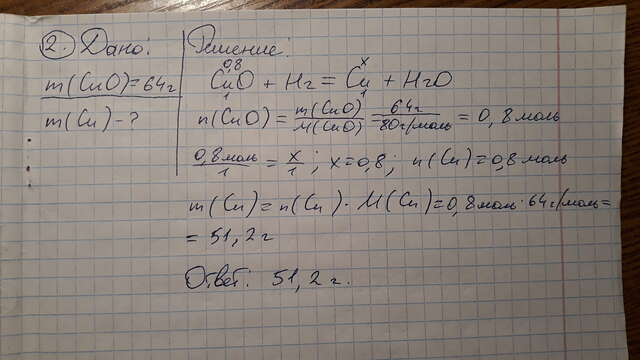 2. Дано:
m(CuO)=64г
m(Cu)-?
Решение:
0,8 x
CuO + H₂ = Cu + H₂O
1 1
n(CuO) = m(CuO)/M(CuO) = 64г/80г/моль = 0,8 моль
0,8 моль/1 = x/1 ; x=0,8; n(Cu)=0,8 моль
m(Cu)=n(Cu)·M(Cu)=0,8 моль·64г/моль=
= 51,2 г
Ответ: 51,2 г.